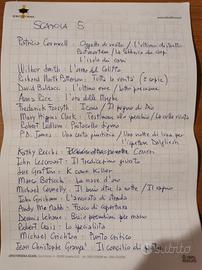 SCATOLA 5
Patricia Cornwell Oggetto di reato / L'ultimo distretto
Postmortem / La fabbrica dei corpi
L'isola dei cani
Wilbur Smith : L'orma del Califfo
Richard North Patterson : Tutta la verità (2 copie)
David Baldacci : L'ultimo eroe /
Anne Rice : L'ora delle streghe
Frederick Forsyth : Icona / Il pugno di Dio
Mary Higgins Clark : Testimone allo specchio /
Robert Ludlum : Protocollo
P.D. James : Una certa giustizia / Una notte di luna per
l'ispettore Dalgliesh
Kathy Reichs : Cadaveri
John Lescroart : Il tredicesimo giurato
Sue Grafton : K come killer
Marco Bettini :
Michael Connelly : Il buio oltre la notte / Il ragno
John Grisham : L'avvocato di strada
Andy McNab : Fuoco di copertura
Dennis Lehane : Buio prendimi per mano
Robert Crais :
Michael Crichton : Punto critico
Jean Christophe Grangé : Il concilio di pietra